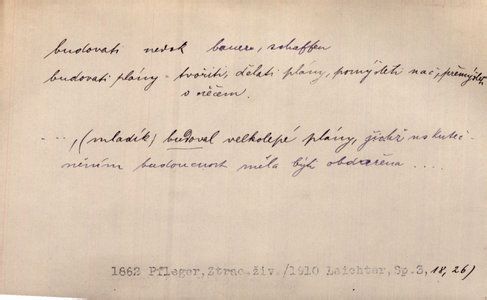 budovati nedok bauen, schaffen
budovati plány - tvořiti, dělati plány, pomýšleti nač, přemýšleti
o něčem.
...., (mladík) budoval velkolepé plány, jichž uskuteč-
něním budoucnost měla býti obdařena ....
1862 Pfleger, Ztrac. živ. /1910 Laichter, Sp. 3, 18, 26)